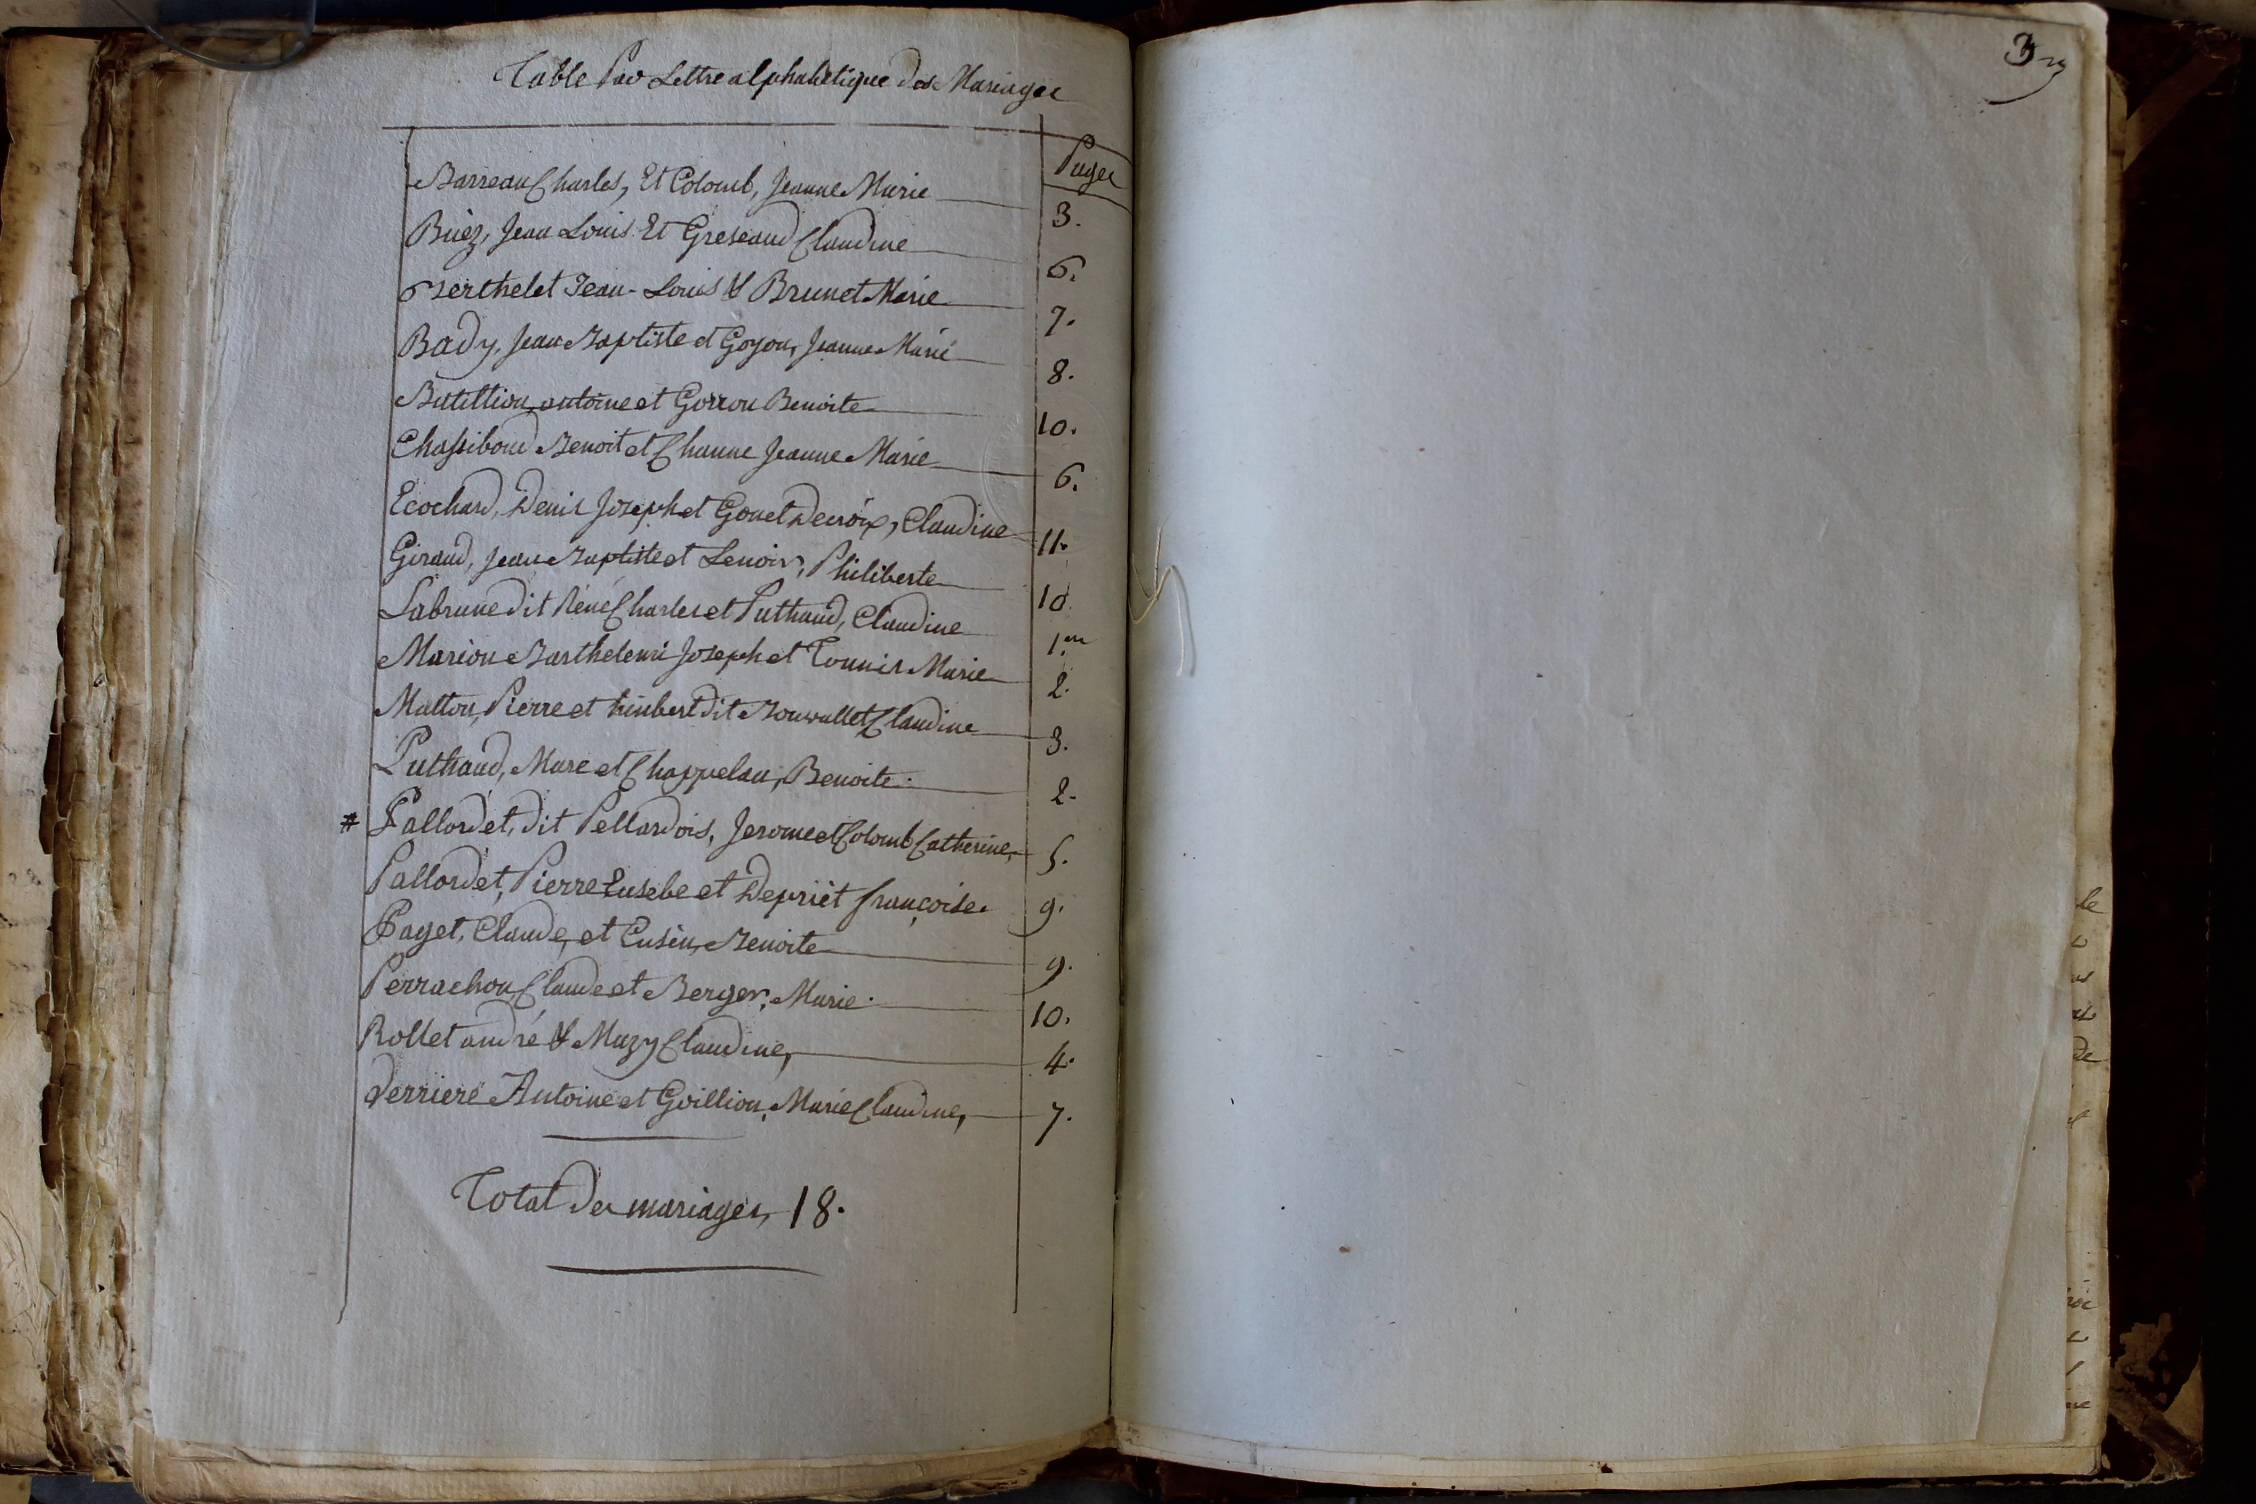 Table Par Lettre alphabetique des Mariages
Pages
Barreau Charles, Et Colomb, Jeanne Marie 3.
Buez, Jean Louis Et Greseaud Claudine 6.
Berthelet Jean-Louis & Brunet Marie 7.
Bady, Jean Baptiste et Goyon, Jeanne Marie 8.
Butillion, antoine et Gorron Benoite 10.
Chassiboud Benoit et Channe Jeanne Marie 6.
Ecochard, Denis Joseph et Gonet Decroix, Claudine 11.
Giraud, Jean Baptiste et Lenoir, Philiberte 10
Labrune dit Réné Charles et Puthaud, Claudine 1.er
Marion Barthelemi Joseph et Tonnis Marie 2.
Matton, Pierre et himbert dit Claudine 3.
Puthaud, Marc et Chappelan, Benoite. 2.
# Pallordet, dit Pellardois, Jerome et Colomb Catherine, 5.
Pallordet, Pierre Eusebe et Depriet françoise. 9.
Paget, Claude, et Cusin, Benoite 9.
Perrachon, Claude et Berger, Marie. 10.
Rollet andré & Muzy Claudine, 4.
Verriere Antoine et Goillion, Marie Claudine, 7.
Total des mariages, 18.